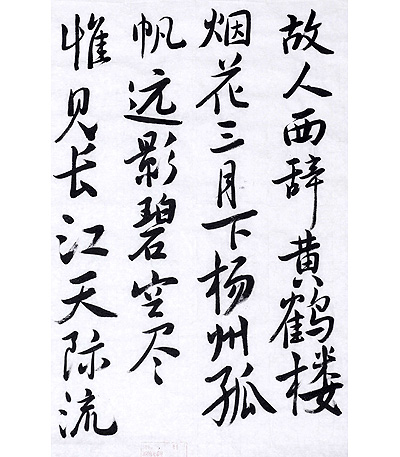 故人西辞黄鹤楼
烟花三月下杨州孤
帆远影碧空尽
惟见长江天际流